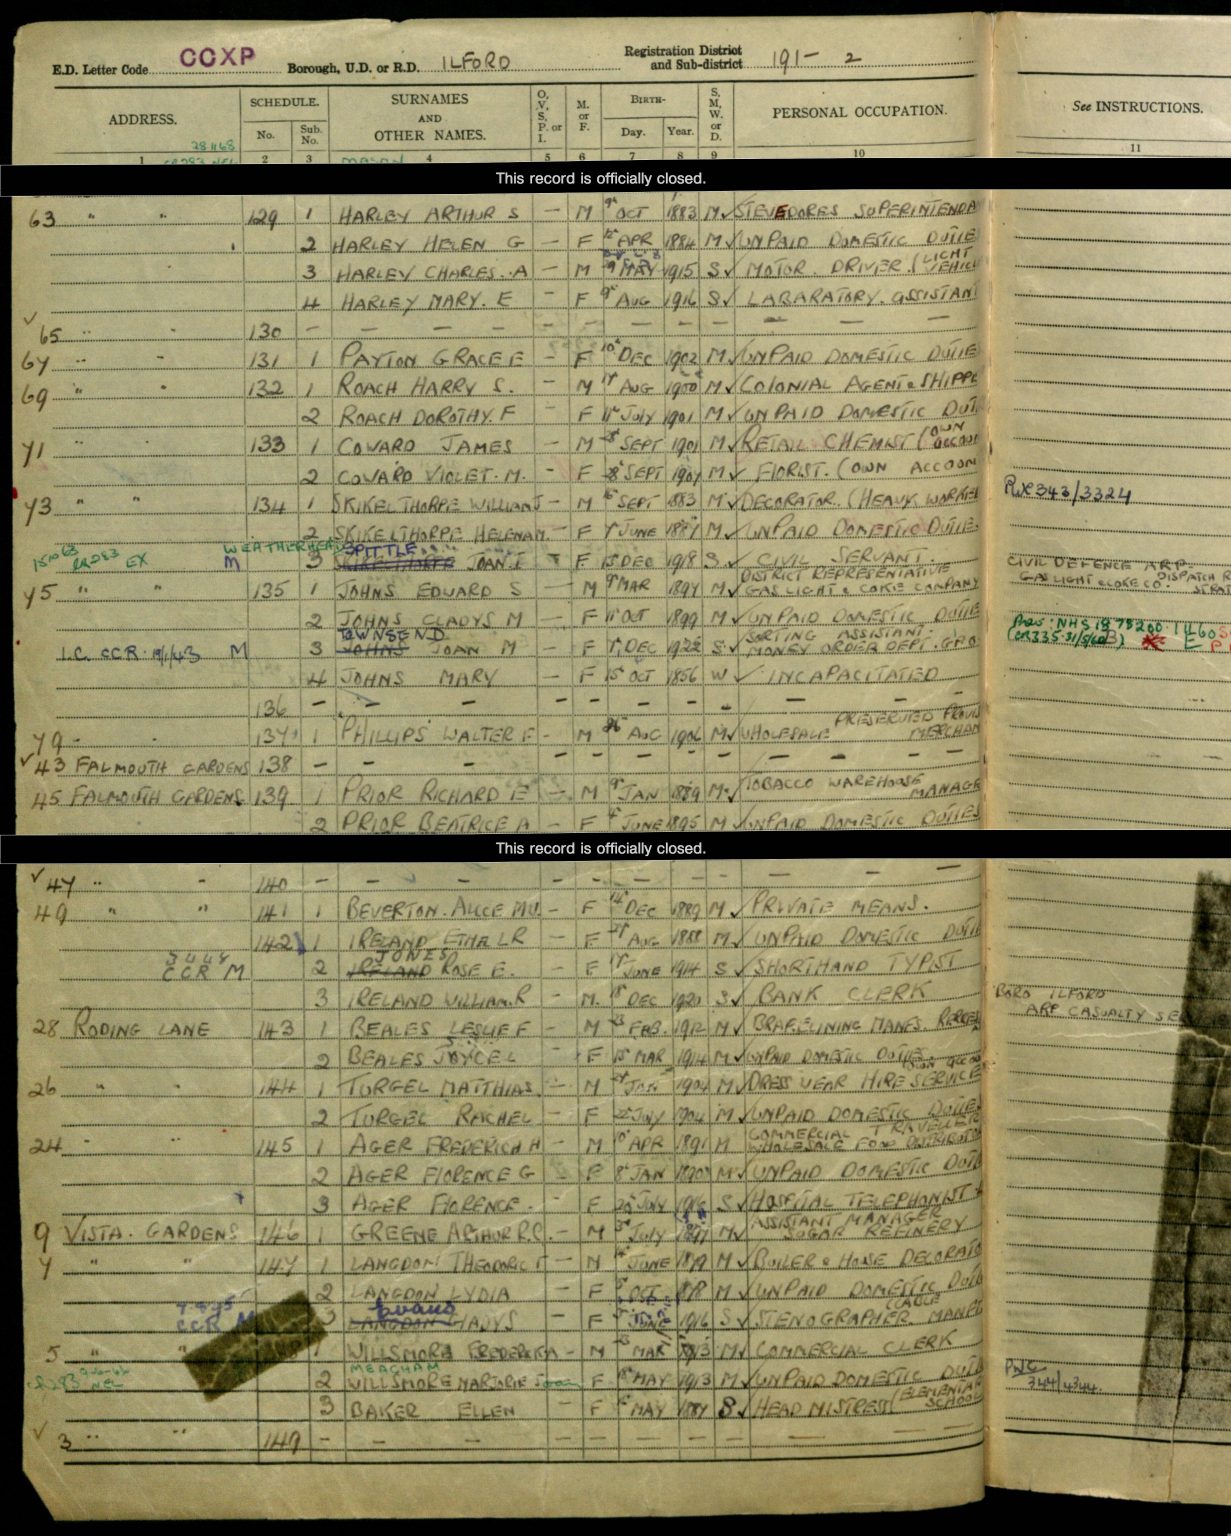 E.D. Letter Code CCXP Borough, U.D. or R.D. ILFORD Registration District and Sub-district 191- 2
ADDRESS. SCHEDULE. No. Sub. No. SURNAMES AND OTHER NAMES. O, V, S, P. or I. M. or F. BIRTH- Day. Year. S, M, W. or D. PERSONAL OCCUPATION. See INSTRUCTIONS.
1 2 3 4 5 6 7 8 9 10 11
This record is officially closed.
63 " " 129 1 HARLEY ARTHUR S - M 9 OCT 1883 M STEVEDORES SUPERINTENDA
2 HARLEY HELEN G - F APR 1884 M UNPAID DOMESTIC DUTIE
3 HARLEY CHARLES. A - M MAY 1915 S MOTOR DRIVER (LIGHT VEHICL
4 HARLEY MARY. E - F 9 AUG 1916 S LABARATORY. ASSISTANT
65 " " 130 - - -
67 " " 131 1 PAYTON GRACE E - F 10 DEC 1902 M UNPAID DOMESTIC DUTIE
69 " " 132 1 ROACH HARRY S. - M AUG 1900 M COLONIAL AGENT & SHIPPE
2 ROACH DOROTHY. F F 11 JULY 1901 M UNPAID DOMESTIC DUTI
71 " " 133 1 COWARD JAMES - M SEPT 1901 M RETAIL CHEMIST (OWN ACCOUN
2 COWARD VIOLET. M. - F 28 SEPT 1907 M FLORIST. (OWN ACCOUN
73 " " 134 1 SKIKELTHORPE WILLIAM J - M 16 SEPT 1883 M DECORATOR. (HEAVY WORKER PWX 343/3324
2 SKIKELTHORPE HELENA M. - F JUNE 1887 M UNPAID DOMESTIC DUTIES
WEATHERHEAD SPITTLE
M 3 SKIKELTHORPE JOAN I F 15 DEC 1918 S CIVIL SERVANT.
CIVIL DEFENCE ARP.
75 " " 135 1 JOHNS EDWARD S M 9 MAR 1897 M DISTRICT REPRESENTATIVE GAS LIGHT & COKE COMPANY GAS LIGHT & COKE CO. DISPATCH R
2 JOHNS GLADYS M - F 11 OCT 1899 M UNPAID DOMESTIC DUTIE
TOWNSEND
CCR 19/1/43 M 3 JOHNS JOAN M - F 1 DEC 1922 S SORTING ASSISTANT. MONEY ORDER DEPT. GPO
4 JOHNS MARY - F 15 OCT 1856 W INCAPACITATED
136 - - -
79 137 1 PHILLIPS WALTER F - M 26 AUG 1906 M WHOLESALE PRESERVED PROVIS MERCHAN
43 FALMOUTH GARDENS 138 - - -
45 FALMOUTH GARDENS 139 1 PRIOR RICHARD E - M 9 JAN 1889 M TOBACCO WAREHOUSE MANAGE
2 PRIOR BEATRICE A - F JUNE 1895 M UNPAID DOMESTIC DUTIES
This record is officially closed.
47 " " 140 - - -
49 " " 141 1 BEVERTON. ALICE M. - F 14 DEC 1889 M PRIVATE MEANS.
142 1 IRELAND ETHEL R - F AUG 1888 M UNPAID DOMESTIC DUTI
JONES
CCR M 2 IRELAND ROSE E. - F JUNE 1914 S SHORTHAND TYPIST
3 IRELAND WILLIAM. R - M. 18 DEC 1920 S BANK CLERK BORO ILFORD ARP CASUALTY SE
28 RODING LANE 143 1 BEALES LESLIE F - M 23 FEB. 1912 M BRAKELINING MANFS.
2 BEALES JOYCE L F 15 MAR 1914 M UNPAID DOMESTIC DUTIES
26 " " 144 1 TURGEL MATTHIAS. - M JAN 1904 M DRESS WEAR HIRE SERVICE (OWN ACCOU
2 TURGEL RACHEL - F JULY 1904 M UNPAID DOMESTIC DUTIES
24 " " 145 1 AGER FREDERICK H - M 10 APR 1891 M COMMERCIAL TRAVELLER WHOLESALE FOOD DISTRIBUTO
2 AGER FLORENCE G - F 8 JAN 1890 M UNPAID DOMESTIC DUTI
3 AGER FLORENCE. - F JULY 1916 S HOSPITAL TELEPHONIST
9 VISTA. GARDENS 146 1 GREENE ARTHUR R.C. - M JULY 1897 M ASSISTANT MANAGER SUGAR REFINERY
7 " " 147 1 LANGDON THEODORIC T - M JUNE 1879 M BUILER & HOUSE DECORATO
2 LANGDON LYDIA - F OCT 1878 M UNPAID DOMESTIC DUTI
CCR M 3 LANGDON GLADYS - F JUNE 1916 S STENOGRAPHER. (CABLE MANF
5 " " 1 WILLSMORE FREDERICK A - M 23 MAR 1913 M COMMERCIAL CLERK
MEACHAM
2 WILLSMORE MARJORIE - F MAY 1913 M UNPAID DOMESTIC DUTI PWC 344/4344.
3 BAKER ELLEN - F MAY 1887 S HEAD MISTRESS (ELEMENTAR SCHOOL
3 " " 149 - - -